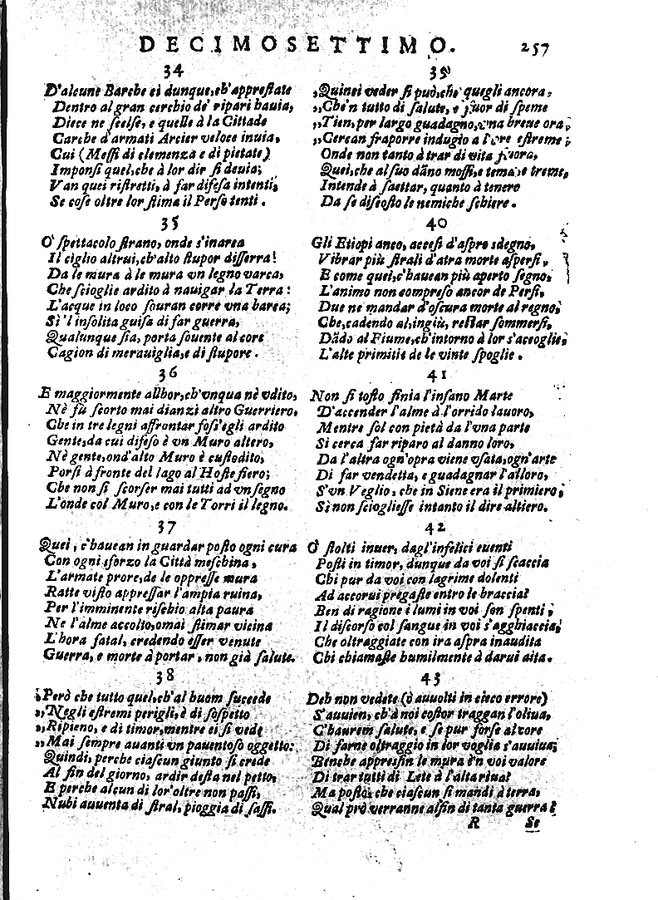 DECIMOSETTIMO. 257
34
D'alcune Barche ei dunque, ch'apprestate
Dentro al gran cerchio de' ripari hauia,
Diece ne scelse, e quelle à la Cittade
Carche d'armati Arcier veloce inuia,
Cui (Messi di clemenza e di pietate)
Imponsi quel, che à lor dir si deuia;
Van quei ristretti, à far difesa intenti,
Se cose oltre lor stima il Perso tenti.
35
O spettacolo strano, onde s'inarca
Il ciglio altrui, ch'alto stupor disserra!
Da le mura à le mura vn legno varca,
Che scioglie ardito à nauigar la Terra:
L'acque in loco souran corre vna barca;
Sì 'l insolita guisa di far guerra,
Qualunque sia, porta souente al core
Cagion di merauiglia, e di stupore.
36
E maggiormente allhor, ch'vnqua nè vdito,
Nè fù scorto mai dianzi altro Guerriero,
Che in tre legni affrontar foss'egli ardito
Gente, da cui difeso è vn Muro altero,
Nè gente, ond'alto Muro è custodito,
Porsi à fronte del lago al Hoste fiero;
Che non si scorser mai tutti ad vn segno
L'onde col Muro, e con le Torri il legno.
37
Quei, c'hauean in guardar posto ogni cura
Con ogni sforzo la Città meschina,
L'armate prore, de le oppresse mura
Ratte visto appressar l'ampia ruina,
Per l'imminente rischio alta paura
Ne l'alme accolto, omai stimar vicina
L'hora fatal, credendo esser venute
Guerra, e morte à portar, non già salute.
38
„Però che tutto quel, ch'al huom succede
„Negli estremi perigli, è di sospetto
„Ripieno, e di timor, mentre ei si vede
„Mai sempre auanti vn pauentoso oggetto:
Quindi, perche ciascun giunto si crede
Al fin del giorno, ardir desta nel petto,
E perche alcun di lor'oltre non passi,
Nubi auuenta di stral, pioggia di sassi.
39
„Quinci veder si può, che quegli ancora,
„Che'n tutto di salute, è fuor di speme
„Tien, per largo guadagno, vna breue ora,
„Cercan fraporre indugio a l'ore estreme;
Onde non tanto à trar di vita fuora,
Quei, che al suo dāno mossi, e teme, e treme,
Intende à saettar, quanto à tenere
Da se discosto le nemiche schiere.
40
Gli Etiopi anco, accesi d'aspro sdegno,
Vibrar più strali d'atra morte aspersi,
E come quei, c'hauean più aperto segno,
L'animo non compreso ancor de Persi,
Due ne mandar d'oscura morte al regno,
Che, cadendo al'ingiù, restar sommersi,
Dādo al Fiume, ch'intorno à lor s'accoglie,
L'alte primitie de le vinte spoglie.
41
Non sì tosto finia l'insano Marte
D'accender l'alme à l'orrido lauoro,
Mentre sol con pietà da l'vna parte
Si cerca far riparo al danno loro,
Da l'altra ogn'opra viene vsata, ogn'arte
Di far vendetta, e guadagnar l'alloro,
S'vn Veglio, che in Siene era il primiero,
Sì non sciogliesse intanto il dire altiero.
42
O stolti inuer, dagl'infelici euenti
Posti in timor, dunque da voi si scaccia
Chi pur da voi con lagrime dolenti
Ad accorui pregaste entro le braccia!
Ben di ragione i lumi in voi son spenti,
Il discorso col sangue in voi s'agghiaccia,
Che oltraggiate con ira aspra inaudita
Chi chiamaste humilmente à darui aita.
43
Deh non vedete (ò auuolti in cieco errore)
S'auuien, ch'à noi costor traggan l'oliua,
C'haurem salute, e se pur forse al core
Di farne oltraggio in lor voglia s'auuiua;
Benche appresfin le mura è'n voi valore
Di trar tutti di Lete à l'altariua!
Ma posto, che ciascun si mandi à terra,
Qual prò verranne alfin di tanta guerra?
R Se